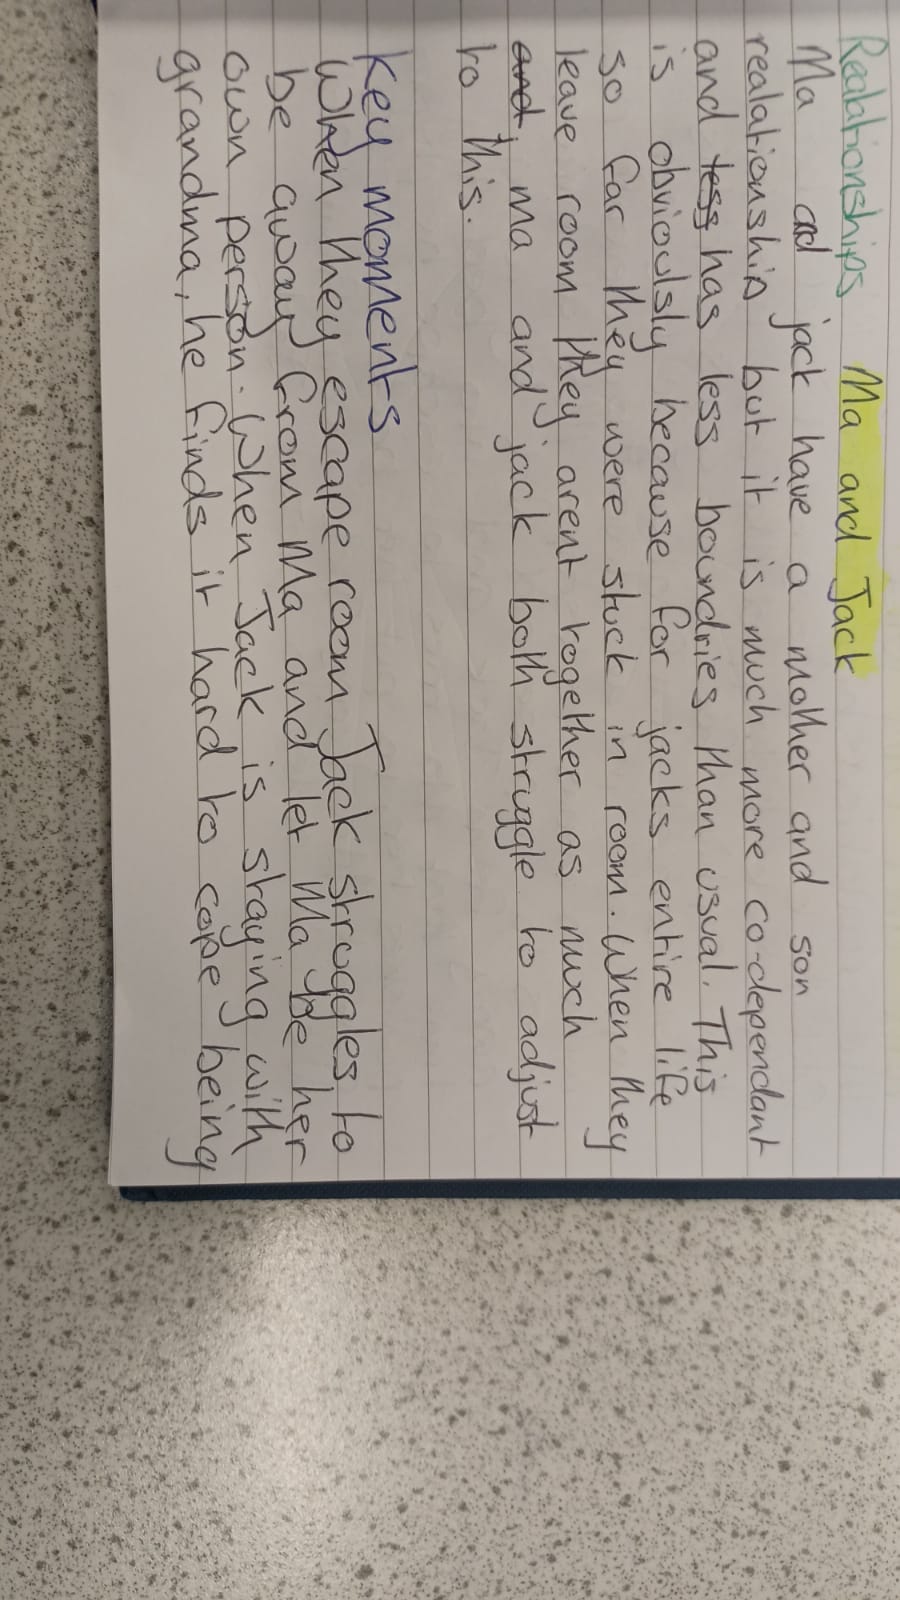 Realationships Ma and Jack
Ma ad jack have a mother and son
realationship but it is much more co-dependant
and less has less boundries than usual. This
is obvioulsly because for jacks entire life
so far they were stuck in room. When they
leave room they arent together as much
and, ma and jack both struggle to adjust
to this.
Key moments
When they escape room Jack struggles to
be away from Ma and let Ma be her
own person. When Jack is staying with
grandma, he finds it hard to cope being